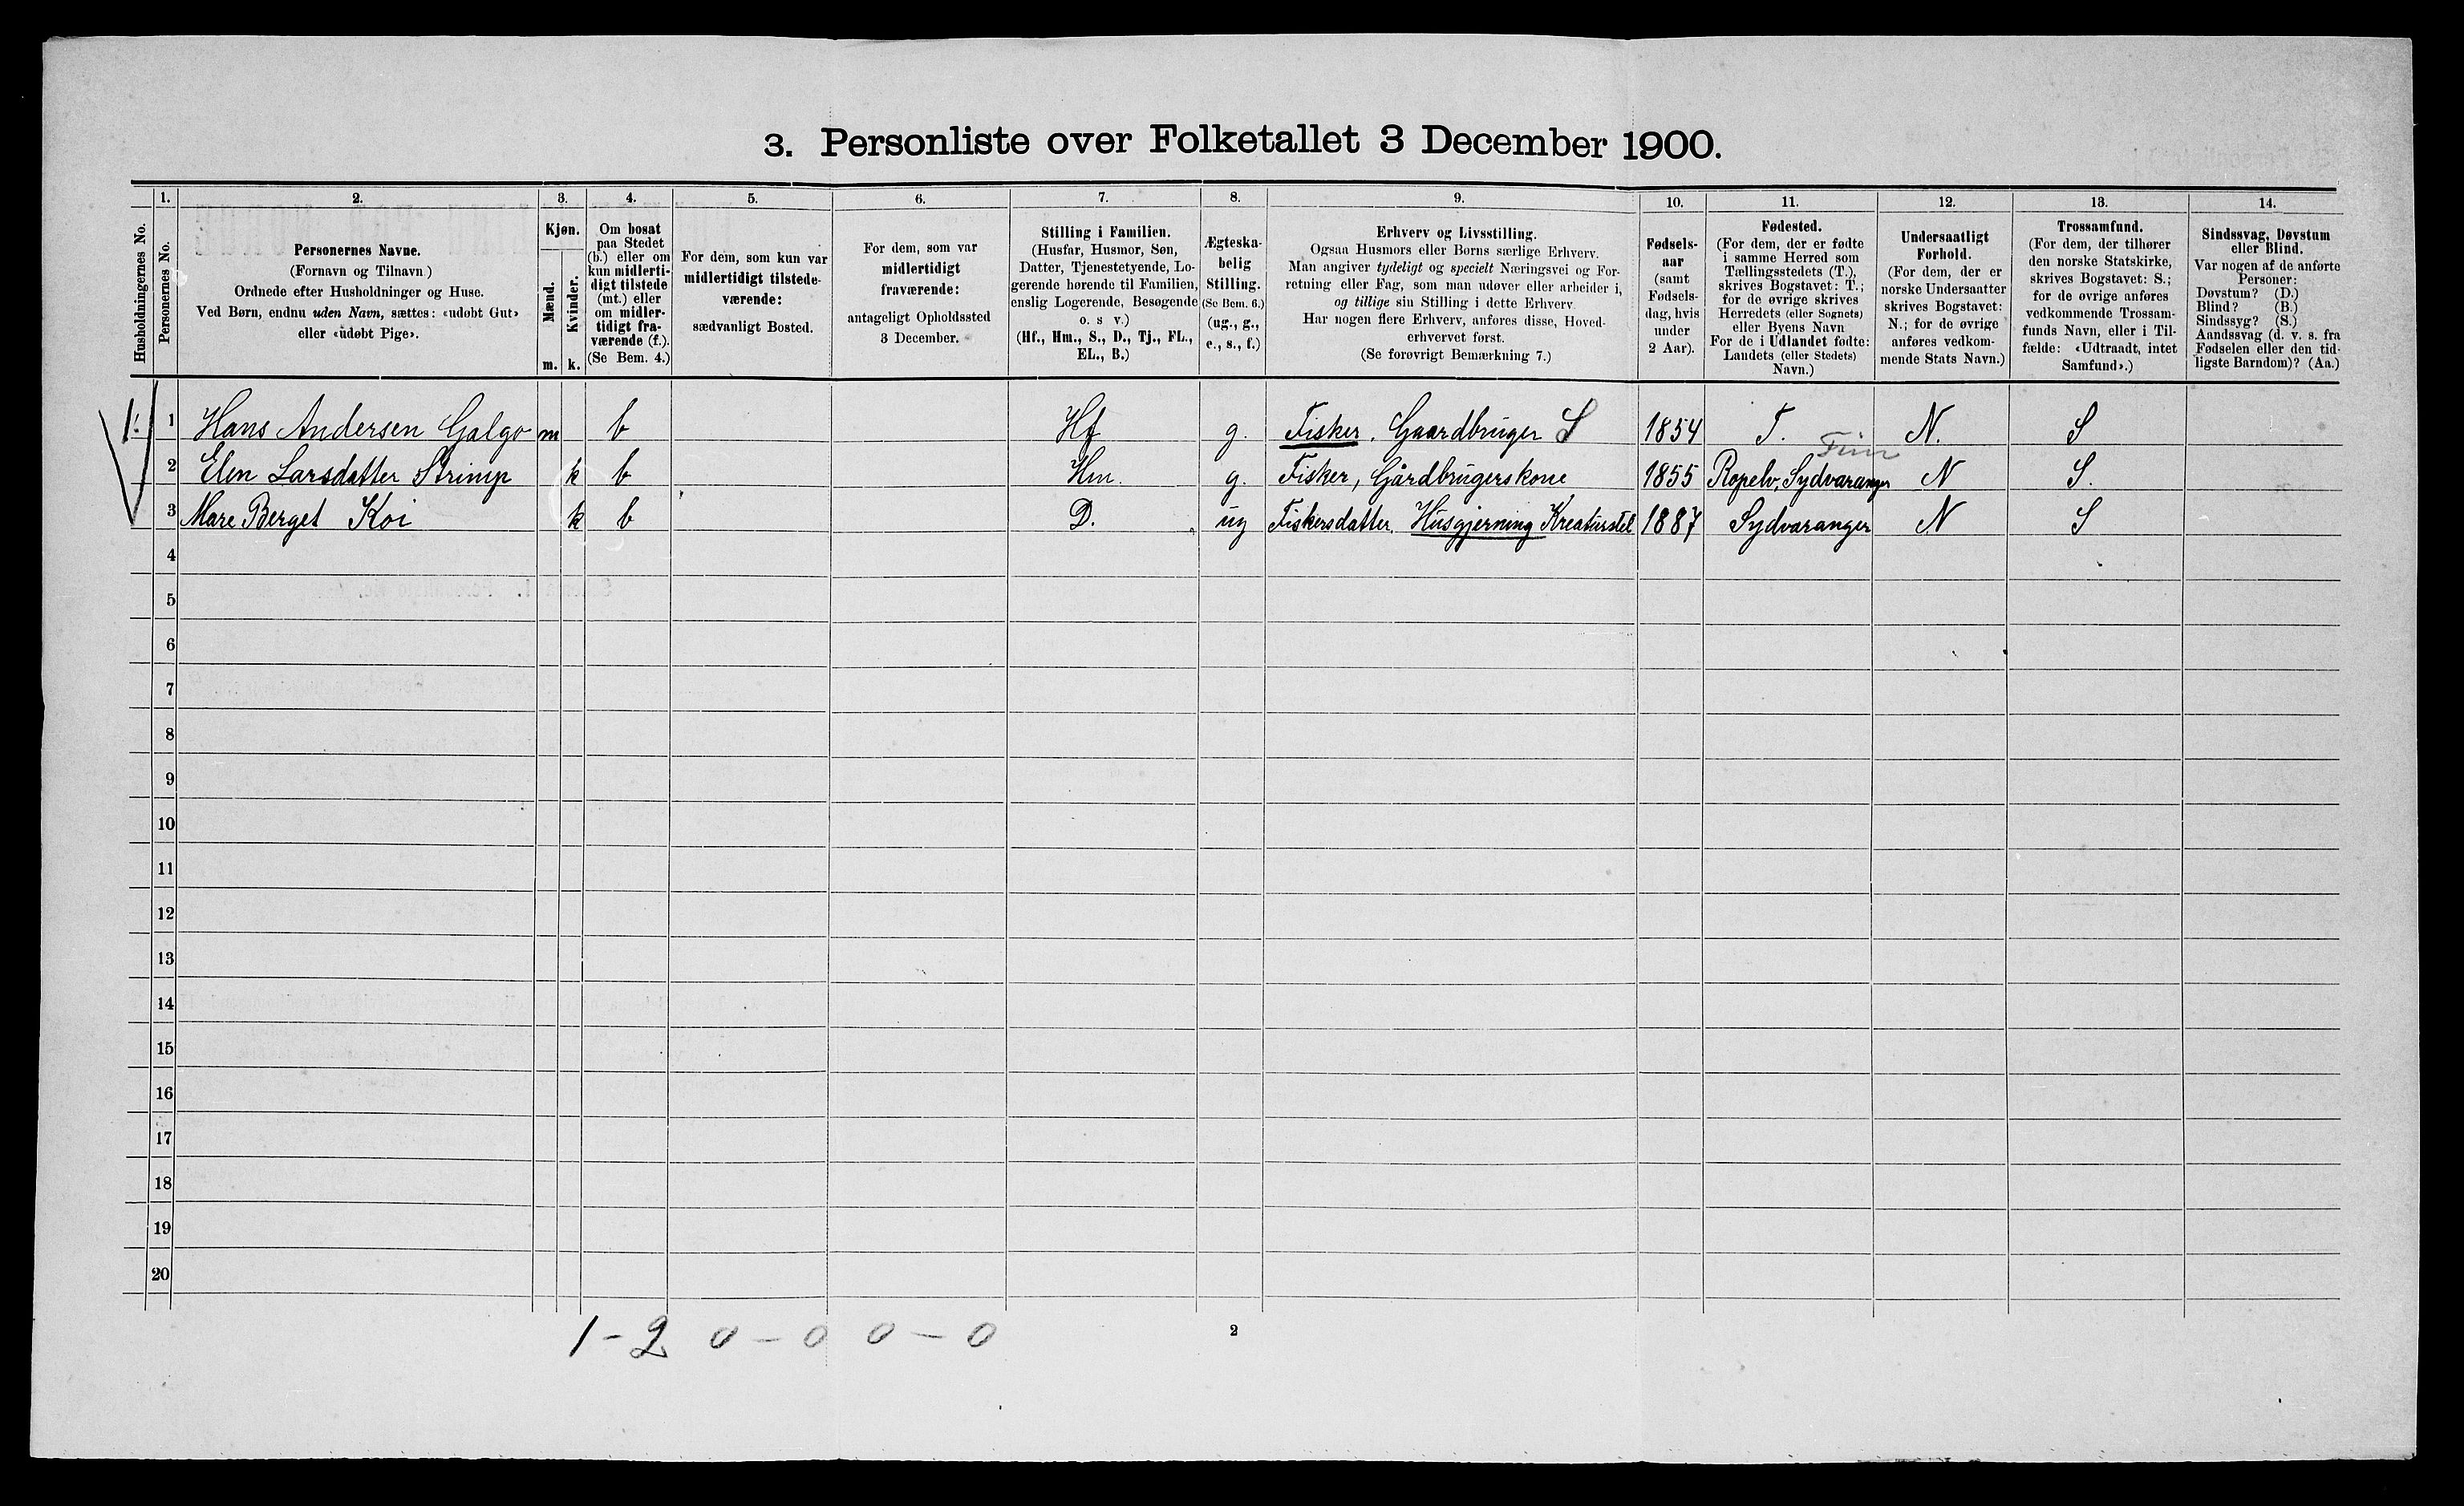 3. Personliste over Folketallet 3 December 1900.
Husholdningernes No.
1.
Personernes No.
2.
Personernes Navne.
(Fornavn og Tilnavn)
Ordnede efter Husholdninger og Huse.
Ved Børn, endnu uden Navn, sættes: «udøbt Gut»
eller «udøbt Pige».
3.
Kjøn.
Mænd.
m.
Kvinder.
k.
4.
Om bosat
paa Stedet
(b.) eller om
kun midlerti-
digt tilstede
(mt.) eller
om midler-
tidigt fra-
værende (f.).
(Se Bem. 4.)
5.
For dem, som kun var
midlertidigt tilstede-
værende:
sædvanligt Bosted.
6.
For dem, som var
midlertidigt
fraværende:
antageligt Opholdssted
3 December.
7.
Stilling i Familien.
(Husfar, Husmor, Søn,
Datter, Tjenestetyende, Lo-
gerende hørende til Familien,
enslig Logerende, Besøgende
o. s v.)
(Hf., Hm., S., D., Tj., FL.,
EL., B.)
8.
Ægteska-
belig
Stilling.
(Se Bem. 6.)
(ug., g.,
e., s., f.)
9.
Erhverv og Livsstilling.
Ogsaa Husmors eller Børns særlige Erhverv.
Man angiver tydeligt og specielt Næringsvei og For-
retning eller Fag, som man udøver eller arbeider i,
og tillige sin Stilling i dette Erhverv.
Har nogen flere Erhverv, anføres disse, Hoved-
erhvervet først.
(Se forøvrigt Bemærkning 7.)
10.
Fødsels-
aar
(samt
Fødsels-
dag, hvis
under
2 Aar).
11.
Fødested.
(For dem, der er fødte
i samme Herred som
Tællingsstedets (T.),
skrives Bogstavet: T.;
for de øvrige skrives
Herredets (eller Sognets)
eller Byens Navn
For de i Udlandet fødte:
Landets (eller Stedets)
Navn.)
12.
Undersaatligt
Forhold.
(For dem, der er
norske Undersaatter
skrives Bogstavet:
N.; for de øvrige
anføres vedkom-
mende Stats Navn.)
13.
Trossamfund.
(For dem, der tilhører
den norske Statskirke,
skrives Bogstavet: S.;
for de øvrige anføres
vedkommende Trossam-
funds Navn, eller i Til-
fælde: «Udtraadt, intet
Samfund».)
14.
Sindssvag, Døvstum
eller Blind.
Var nogen af de anførte
Personer:
Døvstum? (D.)
Blind? (B.)
Sindssyg? (S.)
Aandssvag (d. v. s. fra
Fødselen eller den tid-
ligste Barndom)? (Aa.)
1. 1 Hans Andersen Galgo m b Hf g. Fisker. Gaardbruger S 1854 T. N. S
2 Elen Larsdatter Strimp k b Hm. g. Fisker, Gårdbrugerskone 1855 Ropelv, Sydvaranger N S.
3 Mare Berget Koi k b D. ug Fiskersdatter. Husgjerning Kreaturstel 1887 Sydvaranger N S
4
5
6
7
8
9
10
11
12
13
14
15
16
17
18
19
20
1 - 2 0 - 0 0 - 0
2